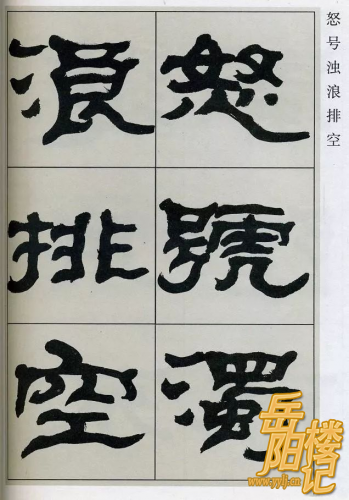 怒号浊浪排空
怒號濁
浪排空
岳阳楼记
www.yylj.cn